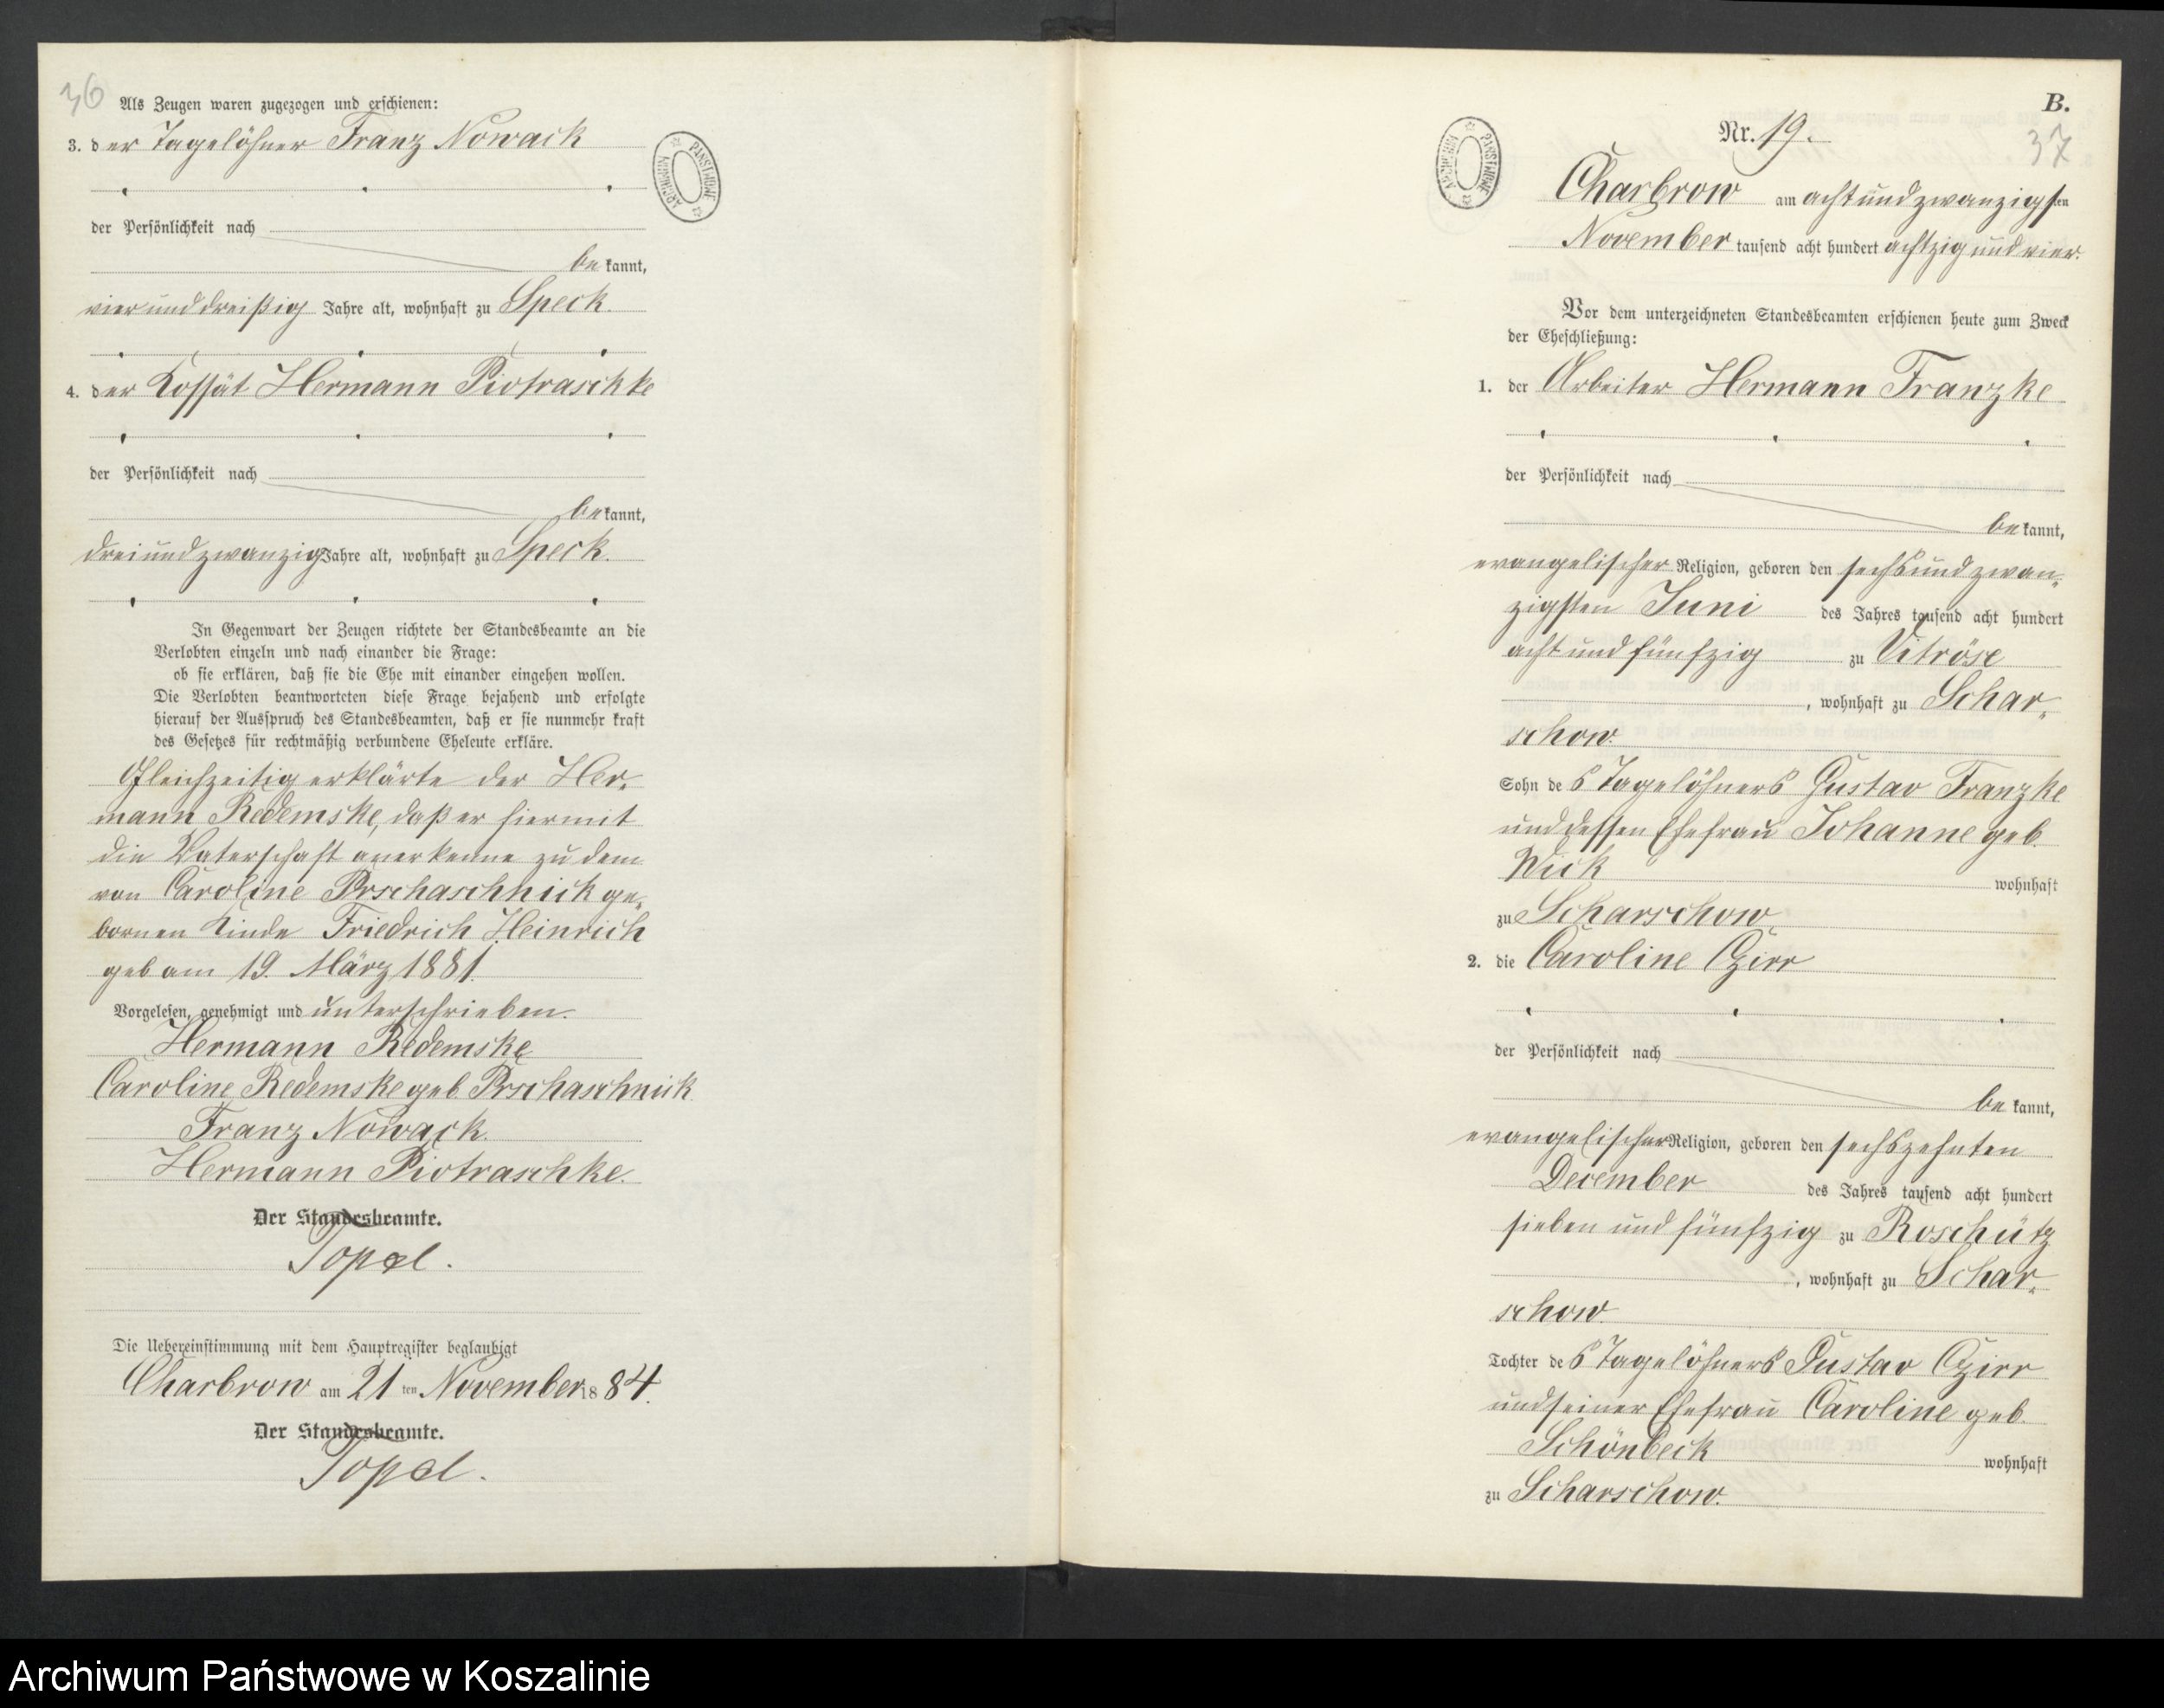 36
Als Zeugen waren zugezogen und erschienen:
3. der Tagelöhner Franz Nowack
der Persönlichkeit nach
be kannt,
vierunddreißig Jahre alt, wohnhaft zu Speck.
4. der Kossät Hermann Piotraschke
der Persönlichkeit nach
be kannt,
dreiundzwanzig Jahre alt, wohnhaft zu Speck.
In Gegenwart der Zeugen richtete der Standesbeamte an die
Verlobten einzeln und nach einander die Frage:
ob sie erklären, daß sie die Ehe mit einander eingehen wollen.
Die Verlobten beantworteten diese Frage bejahend und erfolgte
hierauf der Ausspruch des Standesbeamten, daß er sie nunmehr kraft
des Gesetzes für rechtmäßig verbundene Eheleute erkläre.
Gleichzeitig erklärte der Her-
mann Redemske, daß er hiermit
die Vaterschaft anerkenne zu dem
von Caroline Prschaschnick ge-
bornen Kinde Friedrich Heinrich
geb am 19. März 1881.
Vorgelesen, genehmigt und unterschrieben.
Hermann Redemske
Caroline Redemske geb. Prschaschnick
Franz Nowack.
Hermann Piotraschke.
Der Standesbeamte.
Topel.
Die Uebereinstimmung mit dem Hauptregister beglaubigt
Charbrow am 21 ten November 18 84.
Der Standesbeamte.
Topel.
ARCHIWUM PAŃSTWOWE
B.
Nr. 19.
37
ARCHIWUM PAŃSTWOWE
Charbrow am achtundzwanzigsten
November tausend acht hundert achtzig und vier.
Vor dem unterzeichneten Standesbeamten erschienen heute zum Zweck
der Eheschließung:
1. der Arbeiter Hermann Franzke
der Persönlichkeit nach
be kannt,
evangelischer Religion, geboren den sechsundzwan-
zigsten Juni des Jahres tausend acht hundert
acht und fünfzig zu Vitröse
, wohnhaft zu Schar-
schow.
Sohn des Tagelöhners Gustav Franzke
und dessen Ehefrau Johanne geb.
Wick wohnhaft
zu Scharschow
2. die Caroline Czirr
der Persönlichkeit nach
be kannt,
evangelischer Religion, geboren den sechszehnten
December des Jahres tausend acht hundert
sieben und fünfzig zu Roschütz
, wohnhaft zu Schar-
schow.
Tochter des Tagelöhners Gustav Czirr
und seiner Ehefrau Caroline geb.
Schönbeck wohnhaft
zu Scharschow.
Archiwum Państwowe w Koszalinie